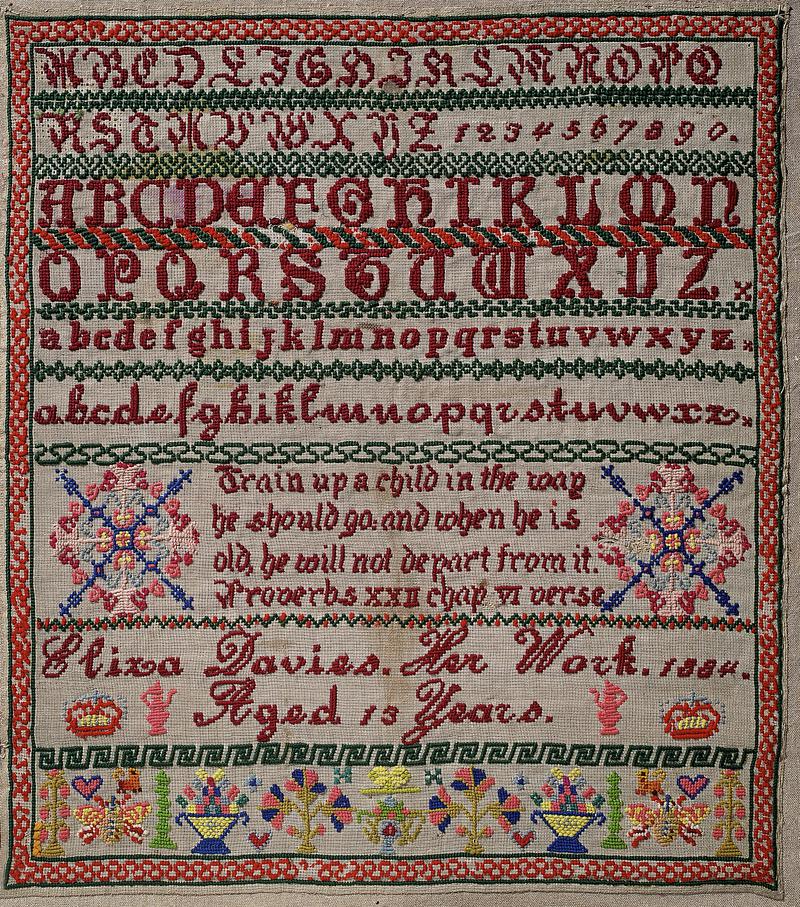 A B C D E F G H I K L M N O P Q
R S T U V W X Y Z 1 2 3 4 5 6 7 8 9 0.
A B C D E F G H I K L M N
O P Q R S T U W X Y Z
a b c d e f g h i j k l m n o p q r s t u v w x y z
a b c d e f g h i k l m n o p q r s t u v w x z
Train up a child in the way
he should go: and when he is
old, he will not depart from it.
Proverbs XXII chap VI verse
Eliza Davies. Her Work. 1884.
Aged 13 Years.